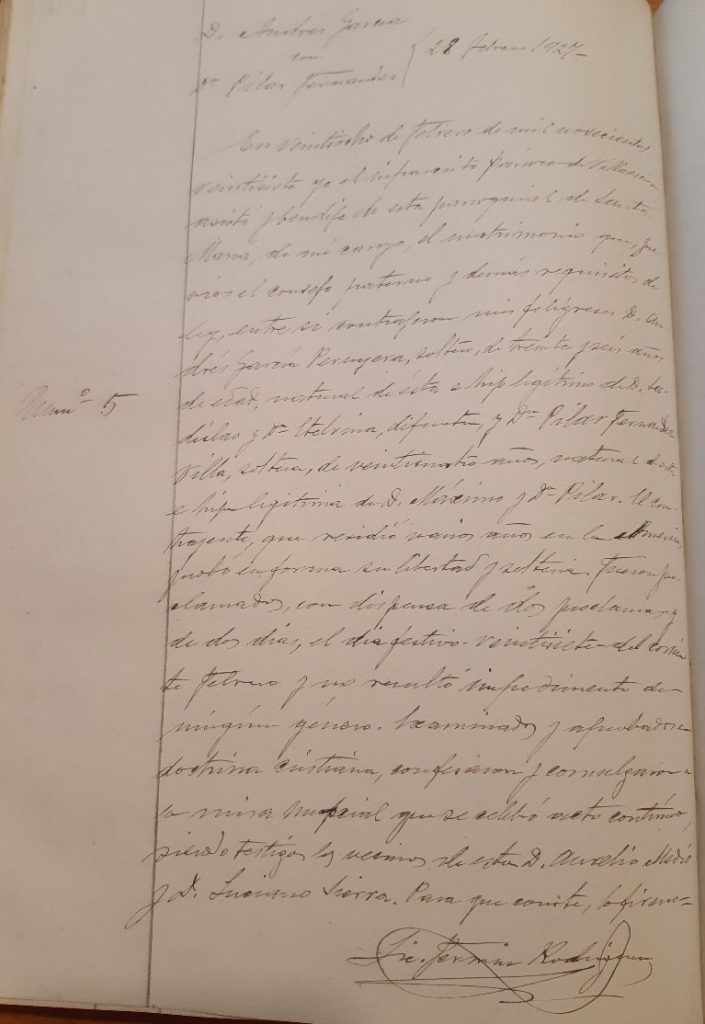 D. Andrés García
con
Dª Pilar Fernandez
28 febrero 1927-
En veintiocho de febrero de mil novecientos
veintisiete yo el infrascrito párroco de
asistí y bendije en esta parroquial de Santa
María, de mi cargo, el matrimonio que, pre-
vios el consejo paterno y demás requisitos de
ley, entre sí contrajeron mis feligreses D. An-
drés García soltero, de treinta y seis años
de edad, natural de ésta e hijo legítimo de D. La-
dislao y Dª Etelvina, difunta, y Dª Pilar Fernandez
Villa, soltera, de veinticuatro años, natural de esta
e hija legítima de D. Máximo y Dª Pilar. El con-
trayente, que residió varios años en la América,
probó en forma su libertad y soltería. Fueron pro-
clamados, con dispensa de dos proclamas y
de dos días, el día festivo veintisiete del corrien-
te febrero y no resultó impedimento de
ningún género. Examinados y aprobados en
doctrina cristiana, confesaron y comulgaron
misa nupcial que se celebró acto contínuo,
siendo testigos los vecinos de esta D. Aurelio
y D. Luciano Sierra. Para que conste, lo firmo-
Lic. Fermín Rodríguez
Num.º 5